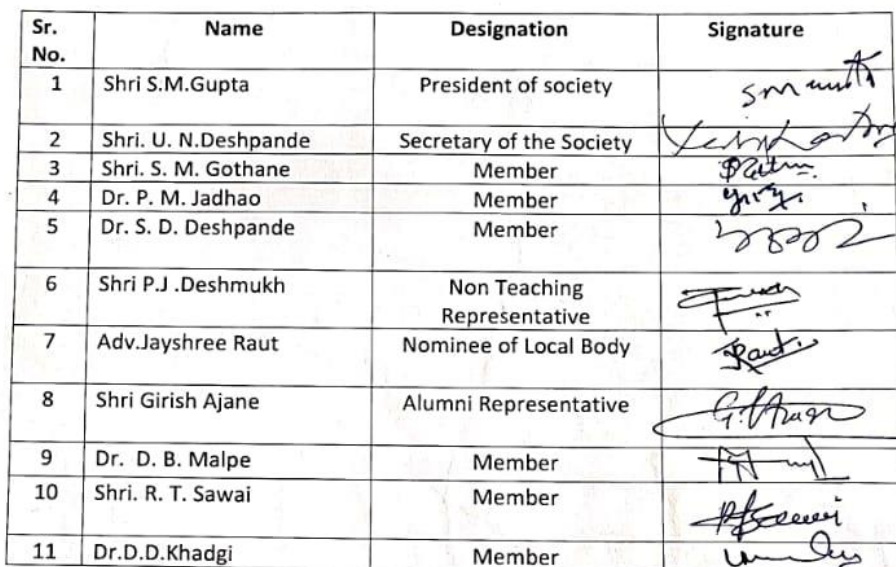 Sr. No. Name Designation Signature
1 Shri S.M.Gupta President of society
2 Shri. U. N.Deshpande Secretary of the Society
3 Shri. S. M. Gothane Member
4 Dr. P. M. Jadhao Member
5 Dr. S. D. Deshpande Member
6 Shri P.J .Deshmukh Non Teaching
Representative
7 Adv.Jayshree Raut Nominee of Local Body Raut
8 Shri Girish Ajane Alumni Representative
9 Dr. D. B. Malpe Member
10 Shri. R. T. Sawai Member
11 Dr.D.D.Khadgi Member